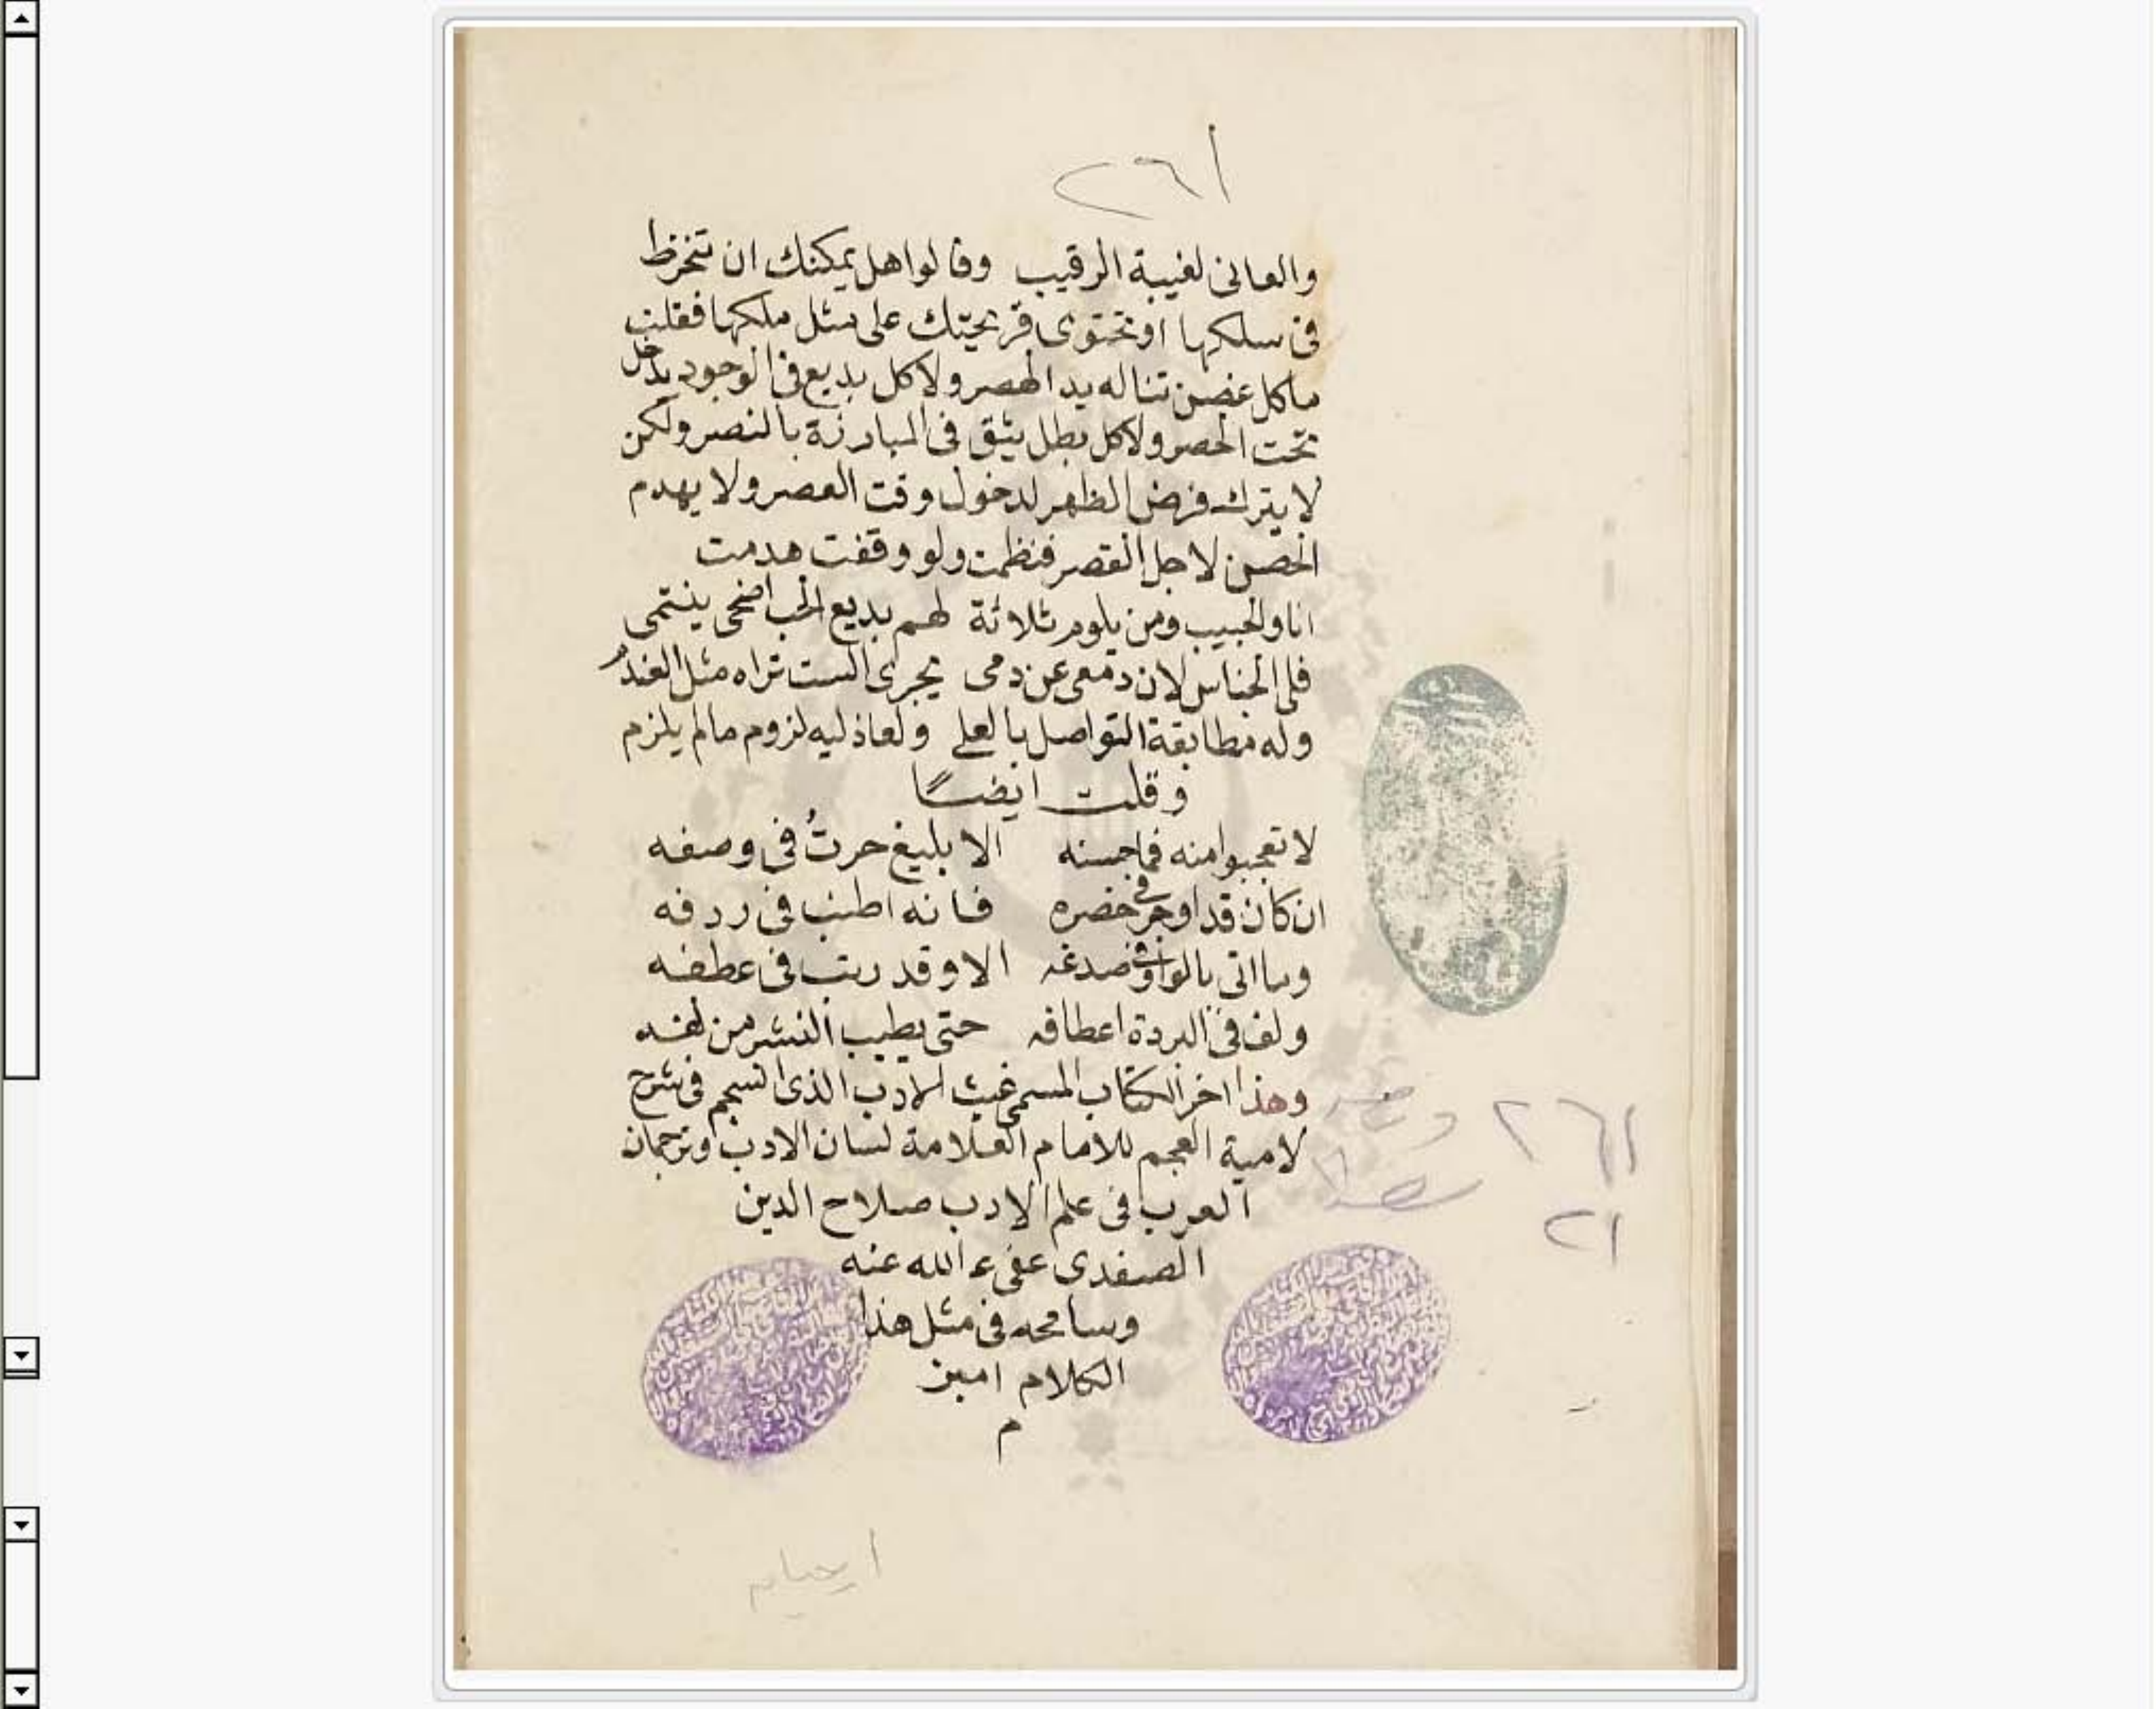 ٢٦١
والعانى لغيبة الرقيب وقالوا هل يمكنك ان تنخرط
فى سلكها او تحتوى قريحتك على مثل ملكها فقلت
ما كل غصن تناله يد الهصر ولا كل بديع فى الوجود يدخل
تحت الحصر ولا كل بطل يثق فى المبارزة بالنصر ولكن
لا يترك فرض الظهر لدخول وقت العصر ولا يهدم
الحصن لاجل القصر فنظمت ولو وقفت هدمت
انا والحبيب ومن يلوم ثلاثة لهم بديع الحب اضحى ينتمى
فلى الجناس لان دمعى عن دمى يجرى الست تراه مثل العندم
وله مطابقة التواصل بالعلى ولعاذليه لزوم ما لم يلزم
وقلت ايضًا
لا تعجبوا منه فما حسنه الا بليغ حرتُ فى وصفه
ان كان قد اوجز فى خصره فانه اطنب فى ردفه
وما اتى بالواو فى صدغه الا وقد رتب فى عطفه
ولف فى البردة اعطافه حتى يطيب النشر من لفه
وهذا اخر الكتاب المسمى غيث الادب الذى انسجم فى شرح
لامية العجم للامام العلامة لسان الادب وترجمان
العرب فى علم الادب صلاح الدين
الصفدى عفى ء الله عنه
وسامحه فى مثل هذا
الكلام امين
م
٢٦١
٢١